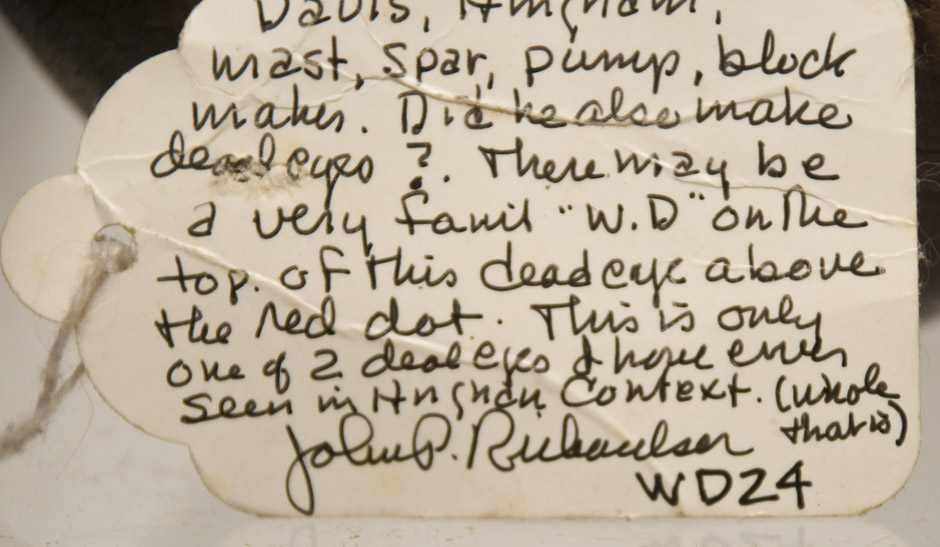 Davis, Hingham,
mast, spar, pump, block
maker. Did he also make
deadeyes ?. There may be
a very faint "W.D" on the
top. of this deadeye above
the red dot. This is only
one of 2 deadeyes I have ever
seen in Hingham Context. (whole
that is)
John P. Richardson
WD24